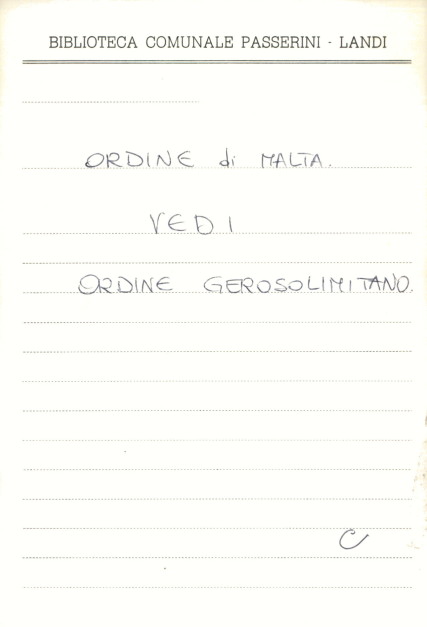 BIBLIOTECA COMUNALE PASSERINI - LANDI
ORDINE di MALTA.
VEDI
ORDINE GEROSOLIMITANO.
C